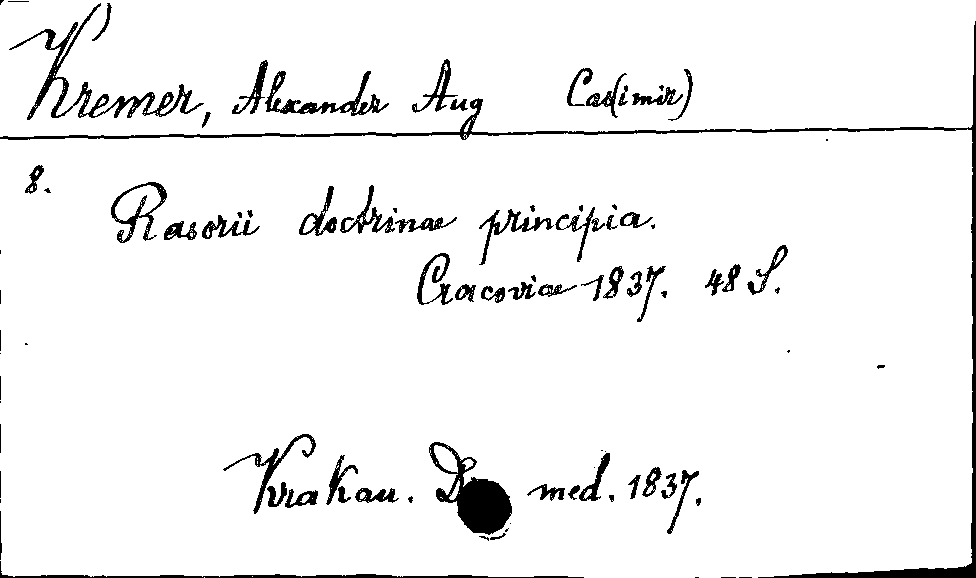 Kremer, Alexander Aug Cas(imir)
8.
Rasorii doctrinae principia.
Cracoviae 1837. 48 S.
Krakau. med. 1837.